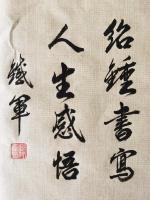 紹鍾書寫
人生感悟
鐵軍